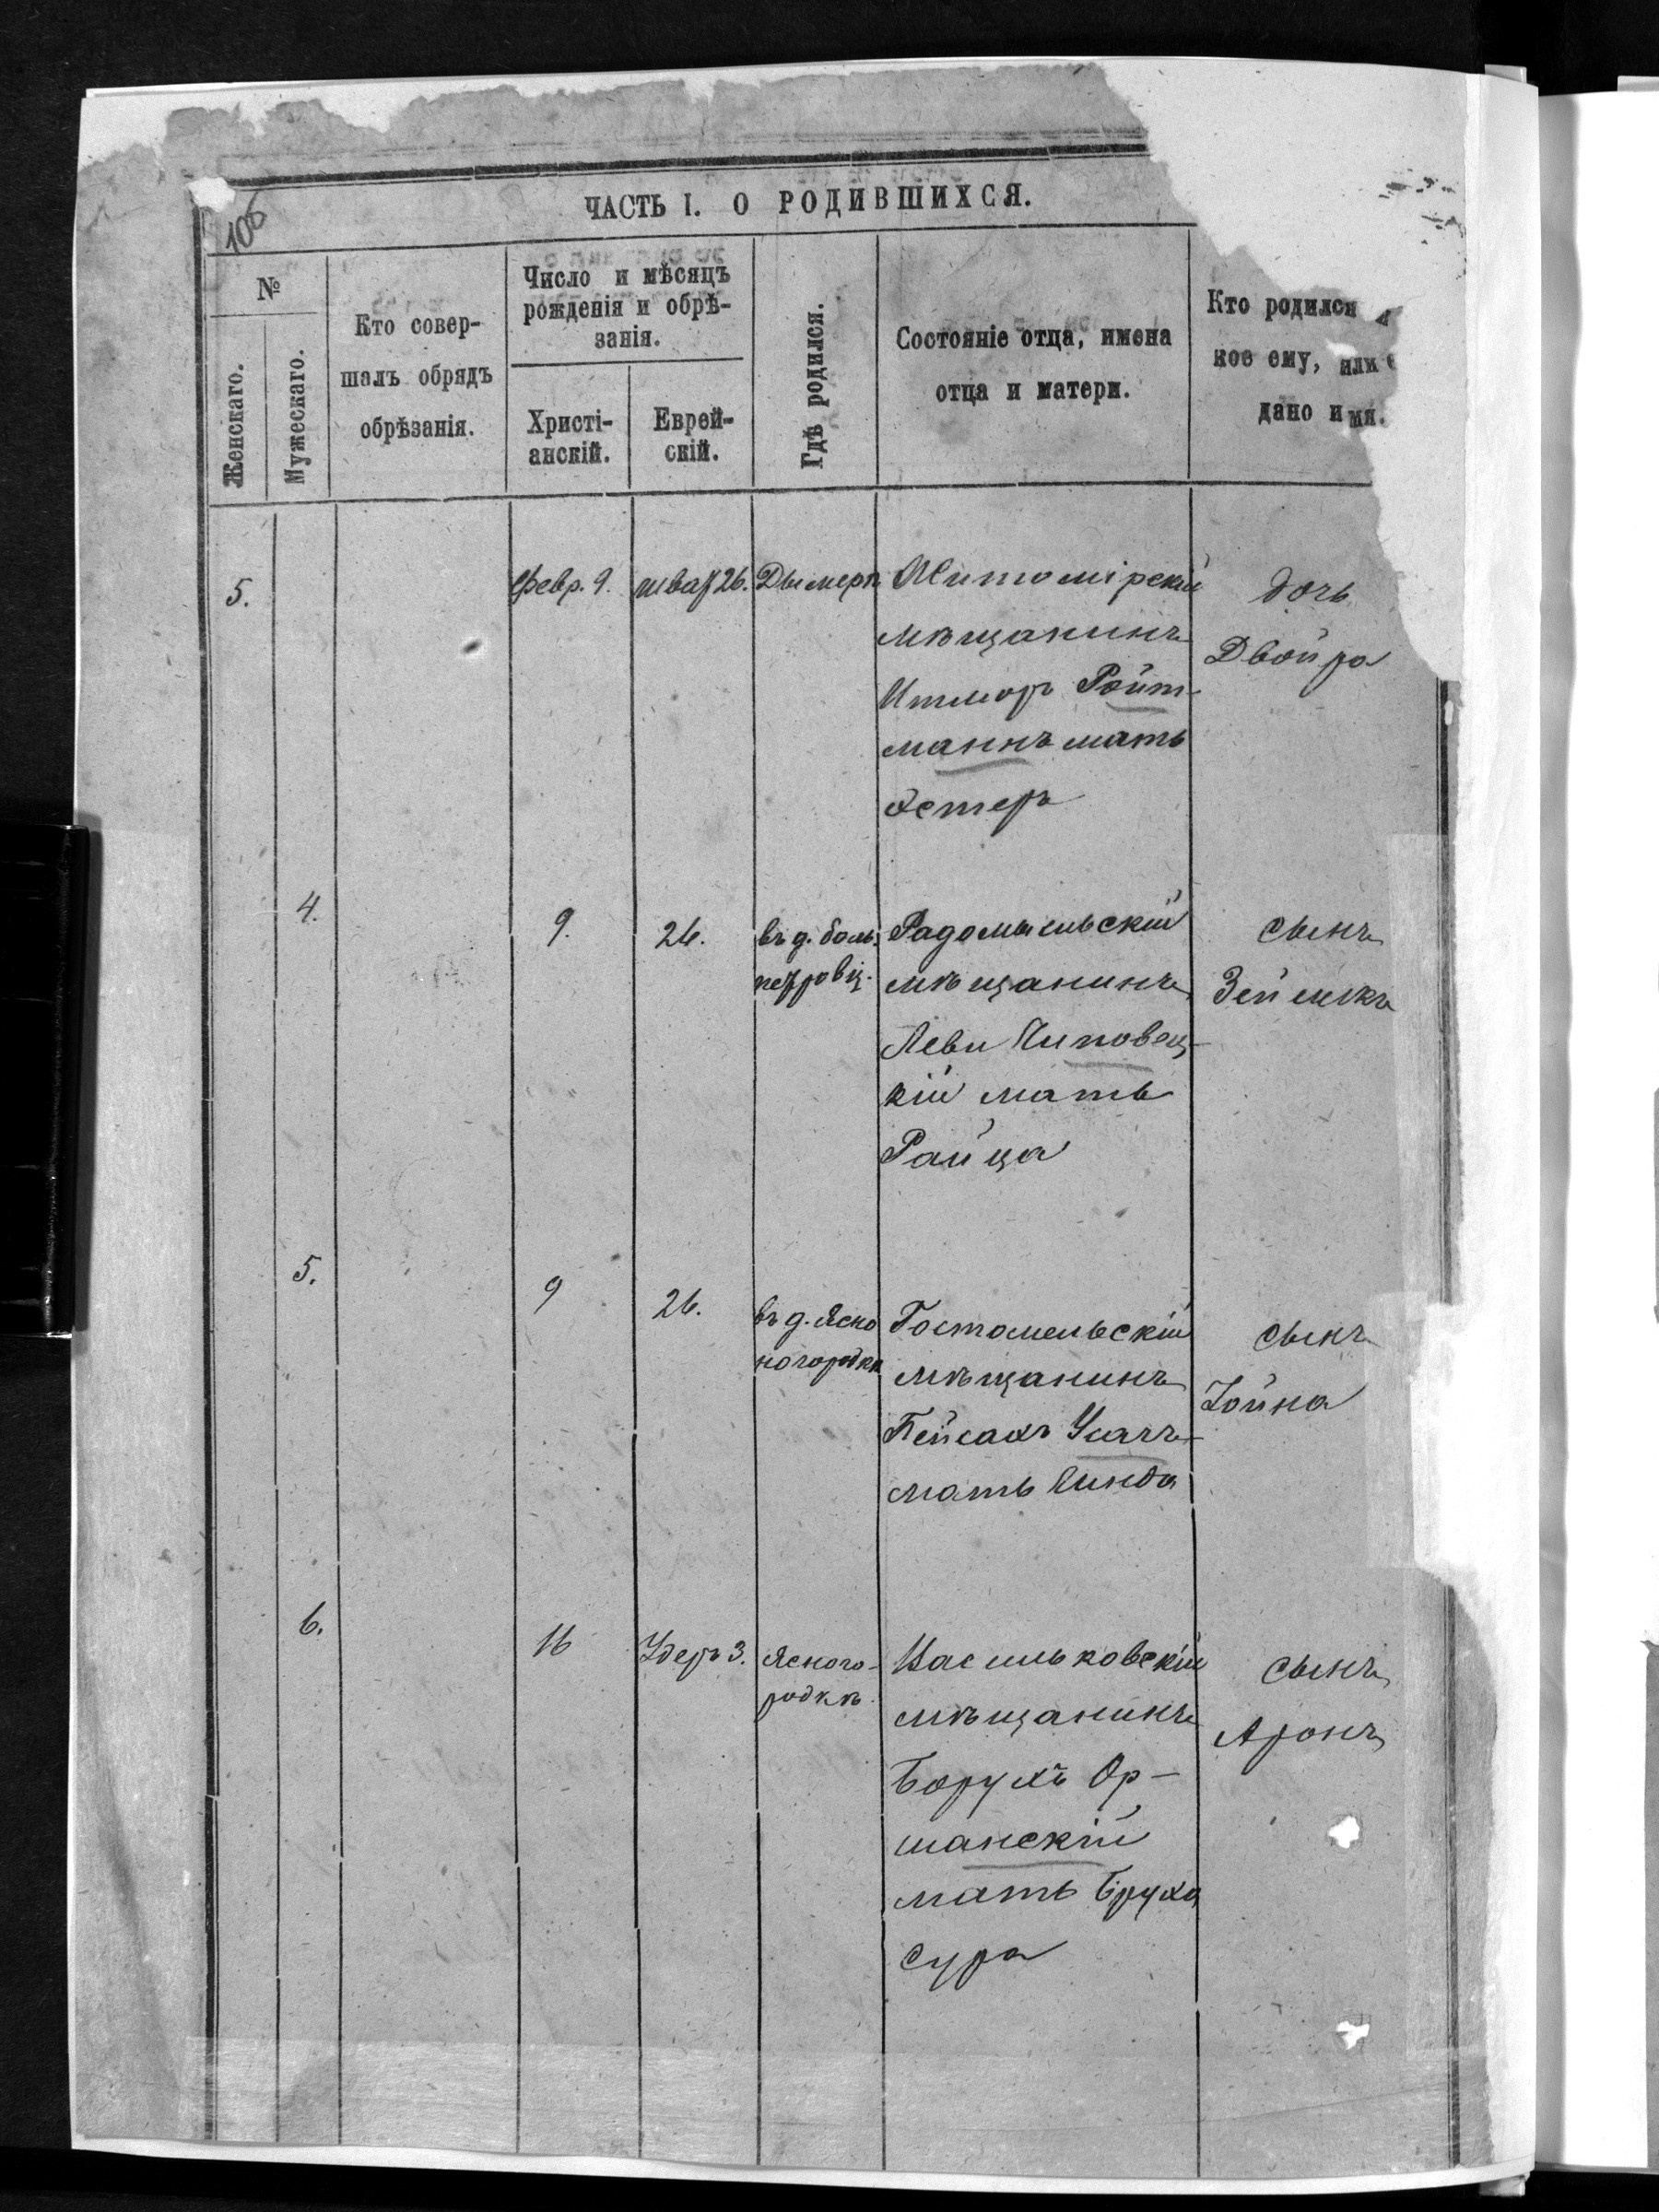 ЧАСТЬ I. О РОДИВШИХСЯ.
106
№
Женскаго.
Мужескаго.
Кто совер-
шалъ обрядъ
обрѣзанія.
Число и мѣсяцъ
рожденія и обрѣ-
занія.
Христі-
анскій.
Еврей-
скій.
Гдѣ родился.
Состояніе отца, имена
отца и матери.
Кто родился
кое ему, или
дано имя.
5.
Февр. 9.
шват 26.
Дымерѣ
Житомірскій
мѣщанинъ
Итморъ Ройт-
манъ мать
Эстеръ
дочь
Двойра
4.
9.
26.
въ д. боль.
петровц.
Радомысльскій
мѣщанинъ
Леви Липовец-
кій мать
Райца
сынъ
Зейликъ
5.
9
26.
въ д. Ясно
ногородкѣ
Гостомельскій
мѣщанинъ
Пейсахъ Усачъ
мать Линда
сынъ
Іойна
6.
16
Удеръ 3.
Ясного-
родкѣ
Васильковскій
мѣщанинъ
Борухъ Ор-
шанскій
мать Бруха
Сура
сынъ
Аронъ